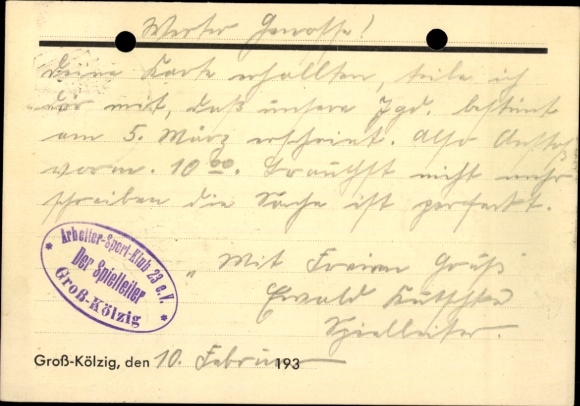 Werter Genosse!
Deine Karte erhallten, teile ich
Dir mit, daß unsere Jgd. bestimt
am 5. März erscheint. Also Anstoß
vorm. 10 00. Brauchst nicht mehr
schreiben die Sache ist perfeckt.
Arbeiter-Sport-Klub 23 e.V.
Der Spielleiter
Groß-Kölzig
Mit Freien Gruß
Ewald
Spielleiter.
Groß-Kölzig, den 10. Februar 193